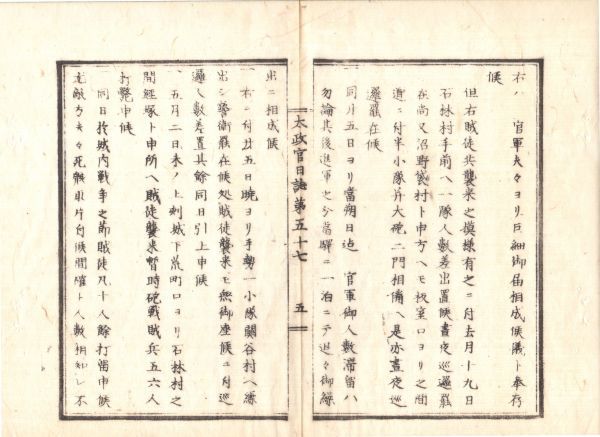 右ハ　官軍夫々ヨリ巨細御届相成候儀ト奉存
候
但右賊徒共襲来之模様有之ニ付去月十九日
石林村手前ヘ一隊人数差出置候昼夜巡邏罷
在尚又沼野袋村ト申方ヘモ板室口ヨリ之間
道ニ付半小隊并大砲二門相備ヘ是亦昼夜巡
邏罷在候
同月五日ヨリ當朔日迄　官軍御人数滞留ハ
勿論其後進軍之分當驛ニ一泊ニテ追々御繰
太政官日誌第五十七
五
出ニ相成候
一右ニ付廿五日暁ヨリ手勢一小隊關谷村ヘ繰
出シ警衛罷在候処賊徒襲来モ無御座候ニ付巡
邏人数差置其餘同日引上申候
一五月二日未ノ上刻城下荒町口ヨリ石林村之
間經塚ト申所ヘ賊徒襲来暫時砲戦賊兵五六人
打斃申候
一同日於城内戦争之節賊徒凡十人餘打留申候
尤敵方夫々死骸取片付候間聢ト人数相知レ不